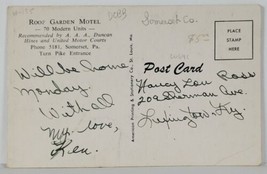 ROOF GARDEN MOTEL
70 Modern Units
Recommended by A. A. A., Duncan
Hines and United Motor Courts
Phone 5181, Somerset, Pa.
Turn Pike Entrance
Somerset Co.
Will be home
Monday.
With all
My love,
Ken.
American Printing & Stationery Co., St. Louis, Mo.
POST CARD
PLACE
STAMP
HERE
Nancy Lou Ross
209 Sherman Ave.
Lexington, Ky.